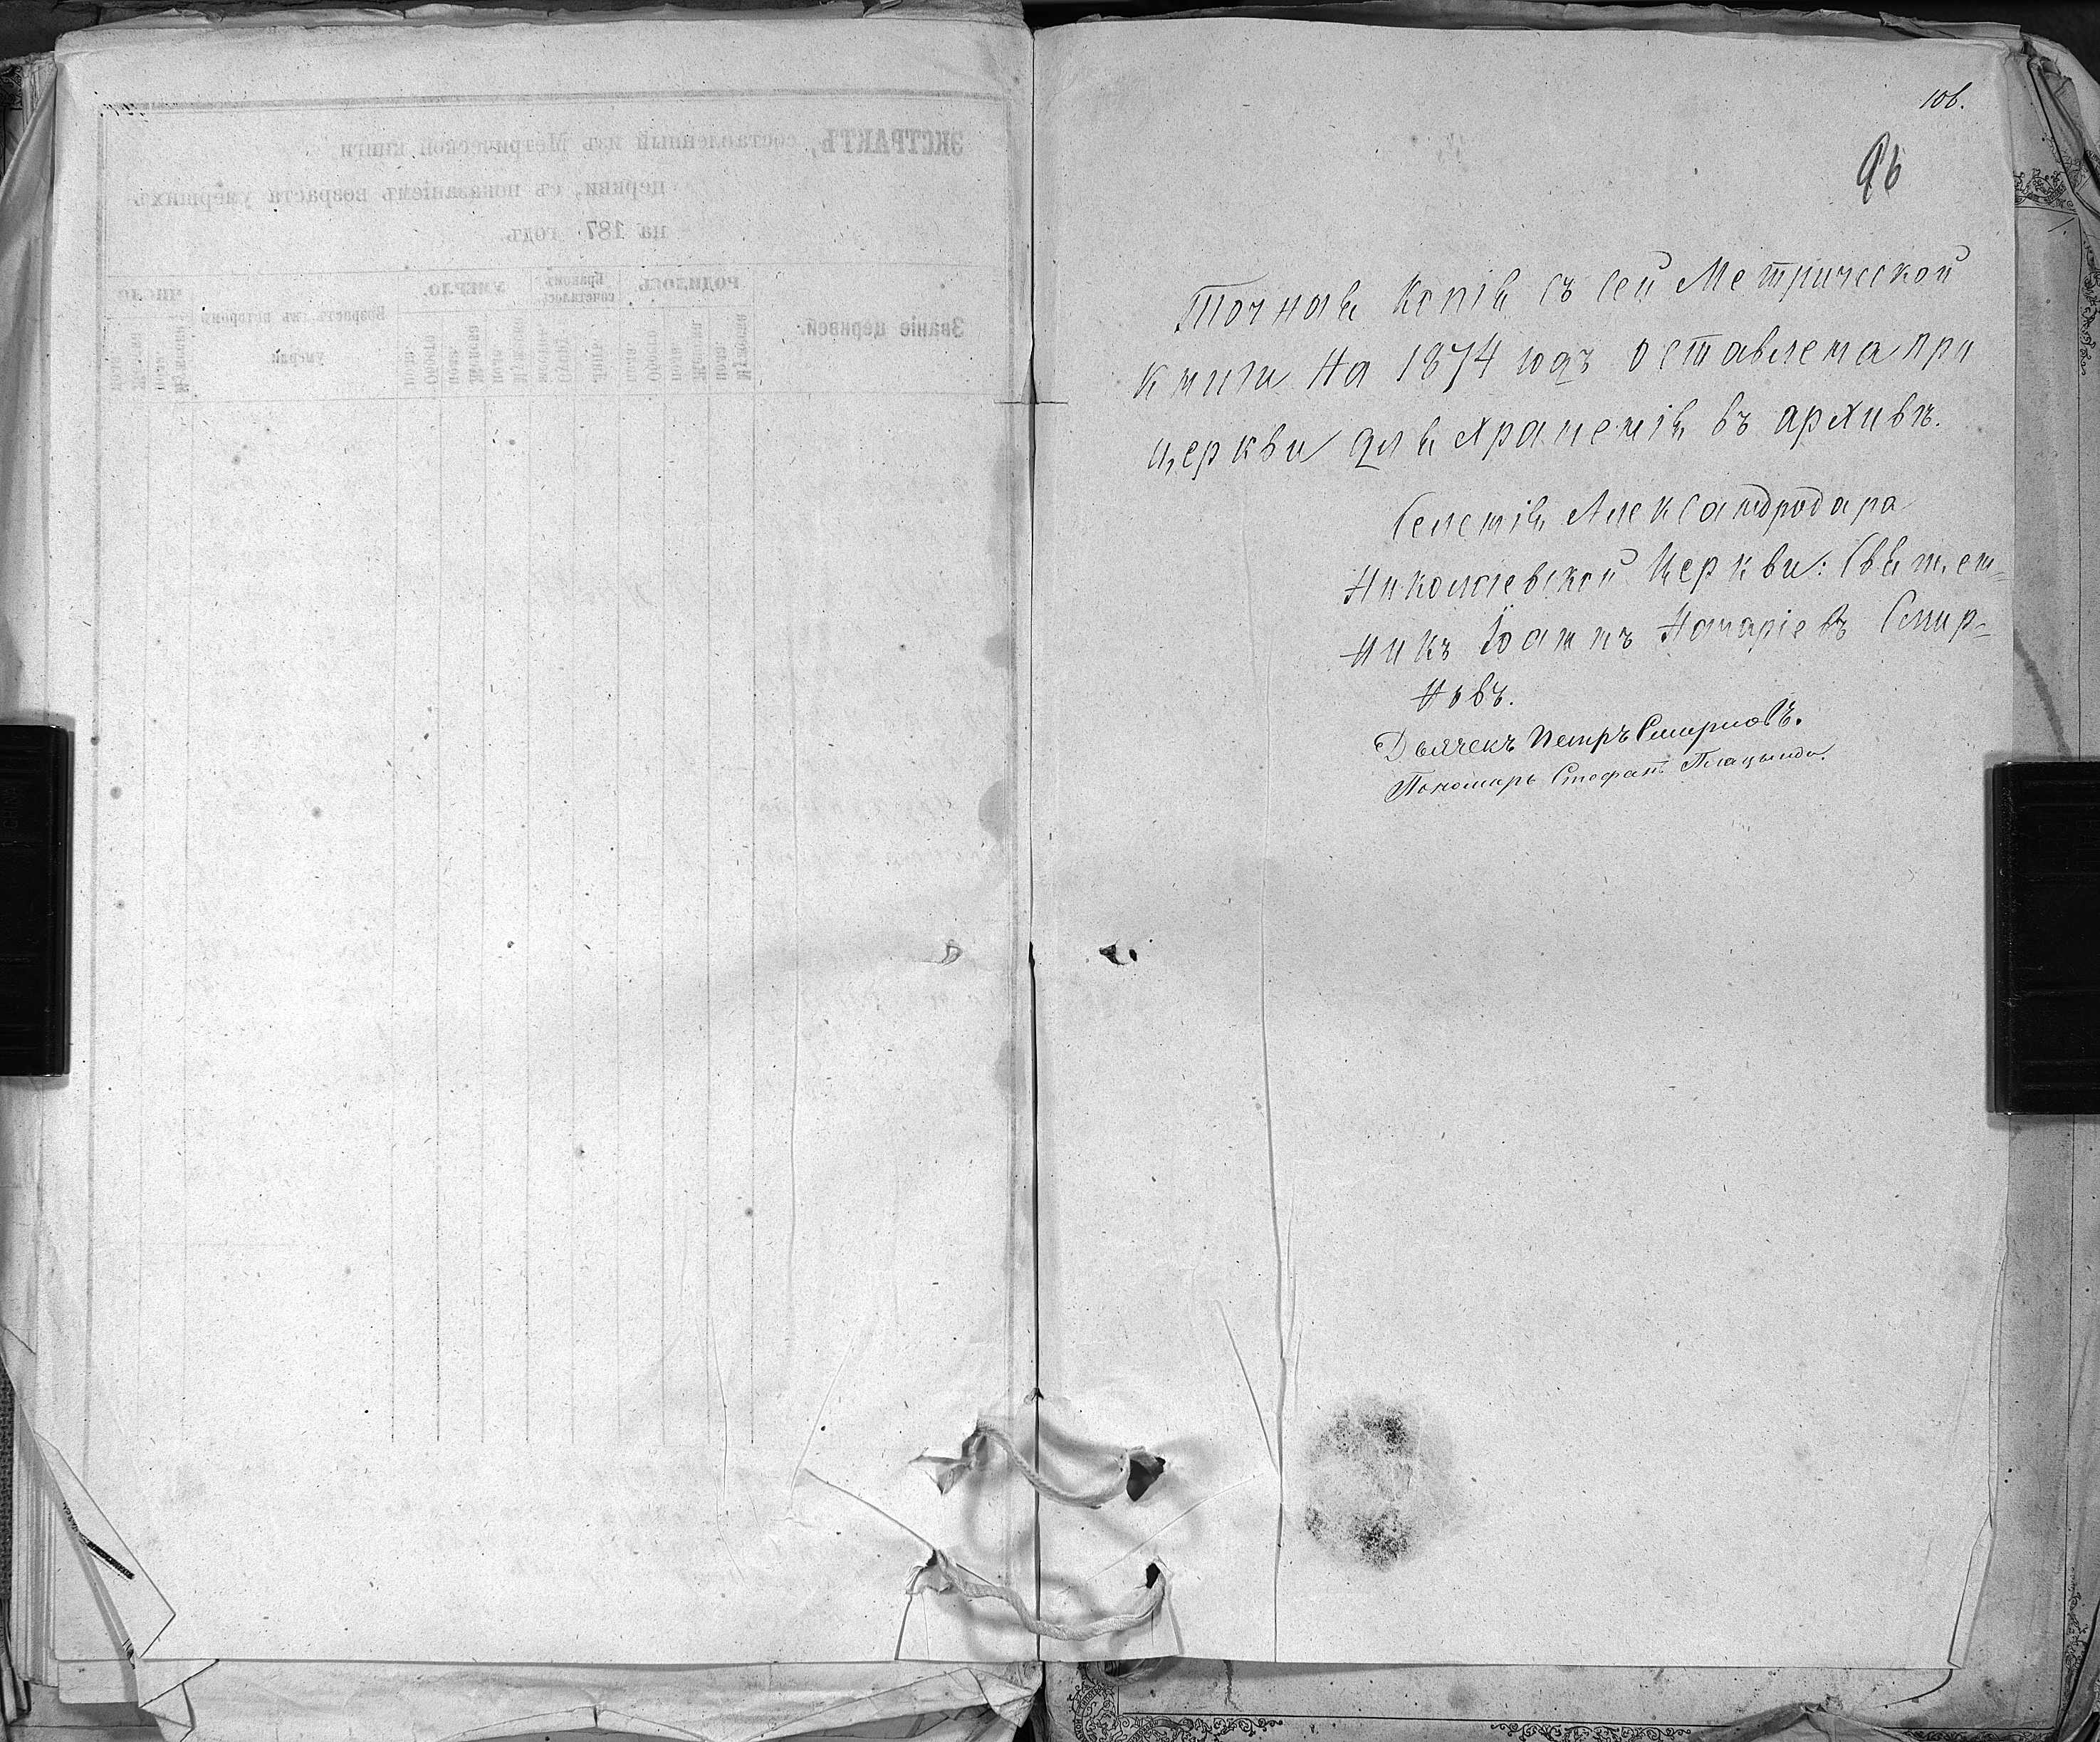 106.
96
Точная копія съ сей Метрической
книги на 1874 годъ оставлена при
церкви для храненія въ архивѣ.
Селенія Александродара
Николаевской Церкви: Священ-
никъ Іоаннъ Назаріевъ Смир-
новъ.
Дьячекъ Петръ Смирновъ.
Пономарь Стефанъ Плацында.
ЭКСТРАКТЪ, составленный изъ Метрической книги
церкви, съ показаніемъ возраста умершихъ
на 187 годъ.
Званіе церквей.
РОДИЛОСЬ.
Бракомъ сочеталось
УМЕРЛО.
ЧИСЛО